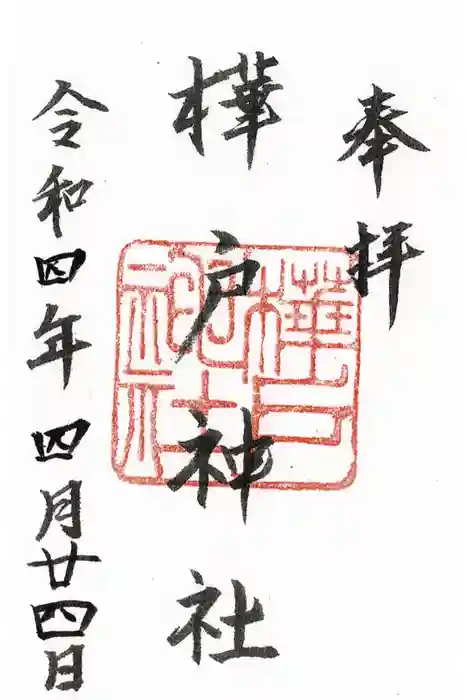 奉拝
樺戸神社
令和四年四月廿四日
樺戸神社